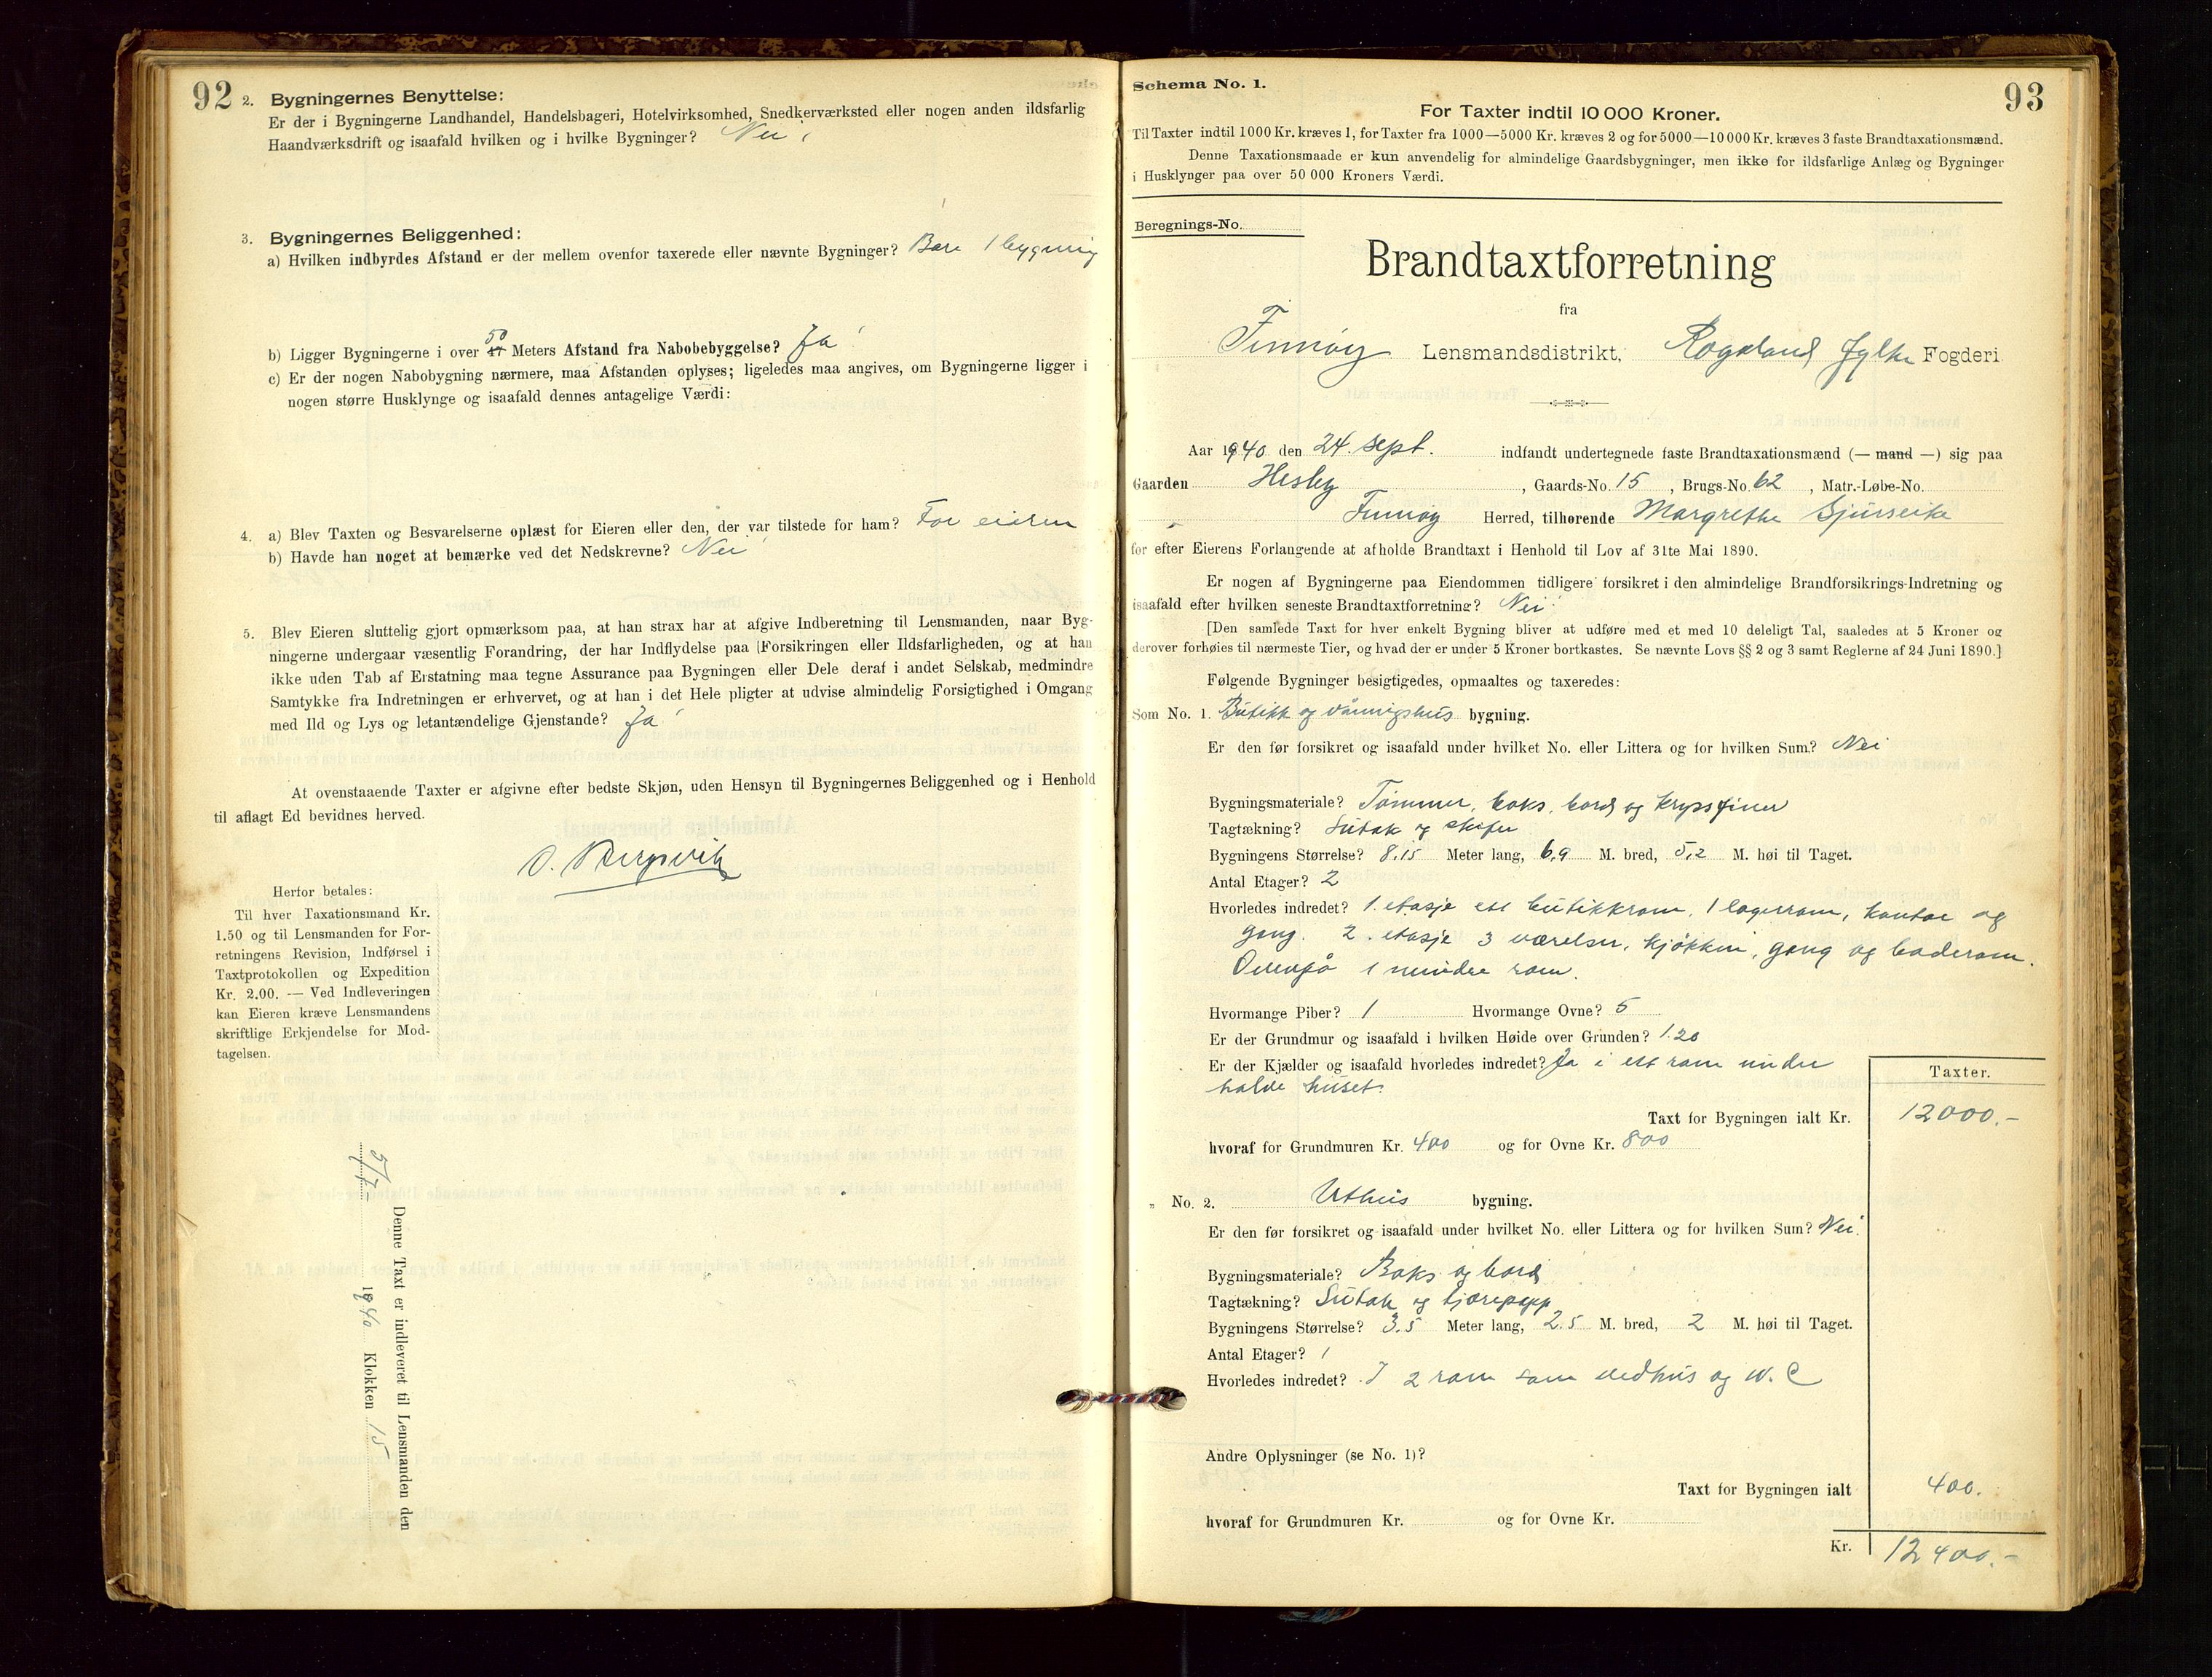 92
2. Bygningernes Benyttelse:
Er der i Bygningerne Landhandel, Handelsbageri, Hotelvirksomhed, Snedkerværksted eller nogen anden ildsfarlig
Haandværksdrift og isaafald hvilken og i hvilke Bygninger? Nei
3. Bygningernes Beliggenhed:
a) Hvilken indbyrdes Afstand er der mellem ovenfor taxerede eller nævnte Bygninger? Bare 1 bygning
b) Ligger Bygningerne i over 50 Meters Afstand fra Nabobebyggelse? Ja
c) Er der nogen Nabobygning nærmere, maa Afstanden oplyses; ligeledes maa angives, om Bygningerne ligger i
nogen større Husklynge og isaafald dennes antagelige Værdi:
4. a) Blev Taxten og Besvarelserne oplæst for Eieren eller den, der var tilstede for ham? For eieren
b) Havde han noget at bemærke ved det Nedskrevne? Nei
5. Blev Eieren sluttelig gjort opmærksom paa, at han strax har at afgive Indberetning til Lensmanden, naar Byg-
ningerne undergaar væsentlig Forandring, der har Indflydelse paa Forsikringen eller Ildsfarligheden, og at han
ikke uden Tab af Erstatning maa tegne Assurance paa Bygningen eller Dele deraf i andet Selskab, medmindre
Samtykke fra Indretningen er erhvervet, og at han i det Hele pligter at udvise almindelig Forsigtighed i Omgang
med Ild og Lys og letantændelige Gjenstande? Ja
At ovenstaaende Taxter er afgivne efter bedste Skjøn, uden Hensyn til Bygningernes Beliggenhed og i Henhold
til aflagt Ed bevidnes herved.
O. Bergsvik
Herfor betales:
Til hver Taxationsmand Kr.
1.50 og til Lensmanden for For-
retningens Revision, Indførsel i
Taxtprotokollen og Expedition
Kr. 2.00. — Ved Indleveringen
kan Eieren kræve Lensmandens
skriftlige Erkjendelse for Mod-
tagelsen.
Denne Taxt er indleveret til Lensmanden den
5/7- 1940 Klokken 15
Schema No. 1.
93
For Taxter indtil 10 000 Kroner.
Til Taxter indtil 1000 Kr. kræves 1, for Taxter fra 1000—5000 Kr. kræves 2 og for 5000—10 000 Kr. kræves 3 faste Brandtaxationsmænd.
Denne Taxationsmaade er kun anvendelig for almindelige Gaardsbygninger, men ikke for ildsfarlige Anlæg og Bygninger
i Husklynger paa over 50 000 Kroners Værdi.
Beregnings-No.
Brandtaxtforretning
fra
Finnøy Lensmandsdistrikt, Rogaland fylke Fogderi
Aar 1940 den 24. sept. indfandt undertegnede faste Brandtaxationsmænd (— mand —) sig paa
Gaarden Hesby, Gaards-No. 15, Brugs-No. 62, Matr.-Løbe-No.
Finnøy Herred, tilhørende Margrethe Gjuseike
for efter Eierens Forlangende at afholde Brandtaxt i Henhold til Lov af 31te Mai 1890.
Er nogen af Bygningerne paa Eiendommen tidligere forsikret i den almindelige Brandforsikrings-Indretning og
isaafald efter hvilken seneste Brandtaxtforretning? Nei
[Den samlede Taxt for hver enkelt Bygning bliver at udføre med et med 10 deleligt Tal, saaledes at 5 Kroner og
derover forhøies til nærmeste Tier, og hvad der er under 5 Kroner bortkastes. Se nævnte Lovs §§ 2 og 3 samt Reglerne af 24 Juni 1890.]
Følgende Bygninger besigtigedes, opmaaltes og taxeredes:
Som No. 1. Butikk og våningshus bygning.
Er den før forsikret og isaafald under hvilket No. eller Littera og for hvilken Sum? Nei
Bygningsmateriale? Tømmer, boks, bord og kryssfiner
Tagtækning? Sutak og skifer
Bygningens Størrelse? 8.15 Meter lang, 6.9 M. bred, 5.2 M. høi til Taget.
Antal Etager? 2
Hvorledes indredet? 1. etasje ett butikkrom, 1 lagerrom, kontor og
gang. 2. etasje 3 værelser, kjøkken, gang og baderom.
Ovenpå 1 mindre rom.
Hvormange Piber? 1 Hvormange Ovne? 5
Er der Grundmur og isaafald i hvilken Høide over Grunden? 1.20
Er der Kjælder og isaafald hvorledes indredet? Ja i ett rom under
halve huset.
Taxter.
Taxt for Bygningen ialt Kr. 12000.-
hvoraf for Grundmuren Kr. 400 og for Ovne Kr. 800
„ No. 2. Uthus bygning.
Er den før forsikret og isaafald under hvilket No. eller Littera og for hvilken Sum? Nei.
Bygningsmateriale? Boks og bord
Tagtækning? Sutak og tjærepapp
Bygningens Størrelse? 3.5 Meter lang, 2.5 M. bred, 2 M. høi til Taget.
Antal Etager? 1
Hvorledes indredet? I 2 rom som vedhus og W.C
Andre Oplysninger (se No. 1)?
Taxt for Bygningen ialt 400.
hvoraf for Grundmuren Kr. og for Ovne Kr.
Kr. 12400.-